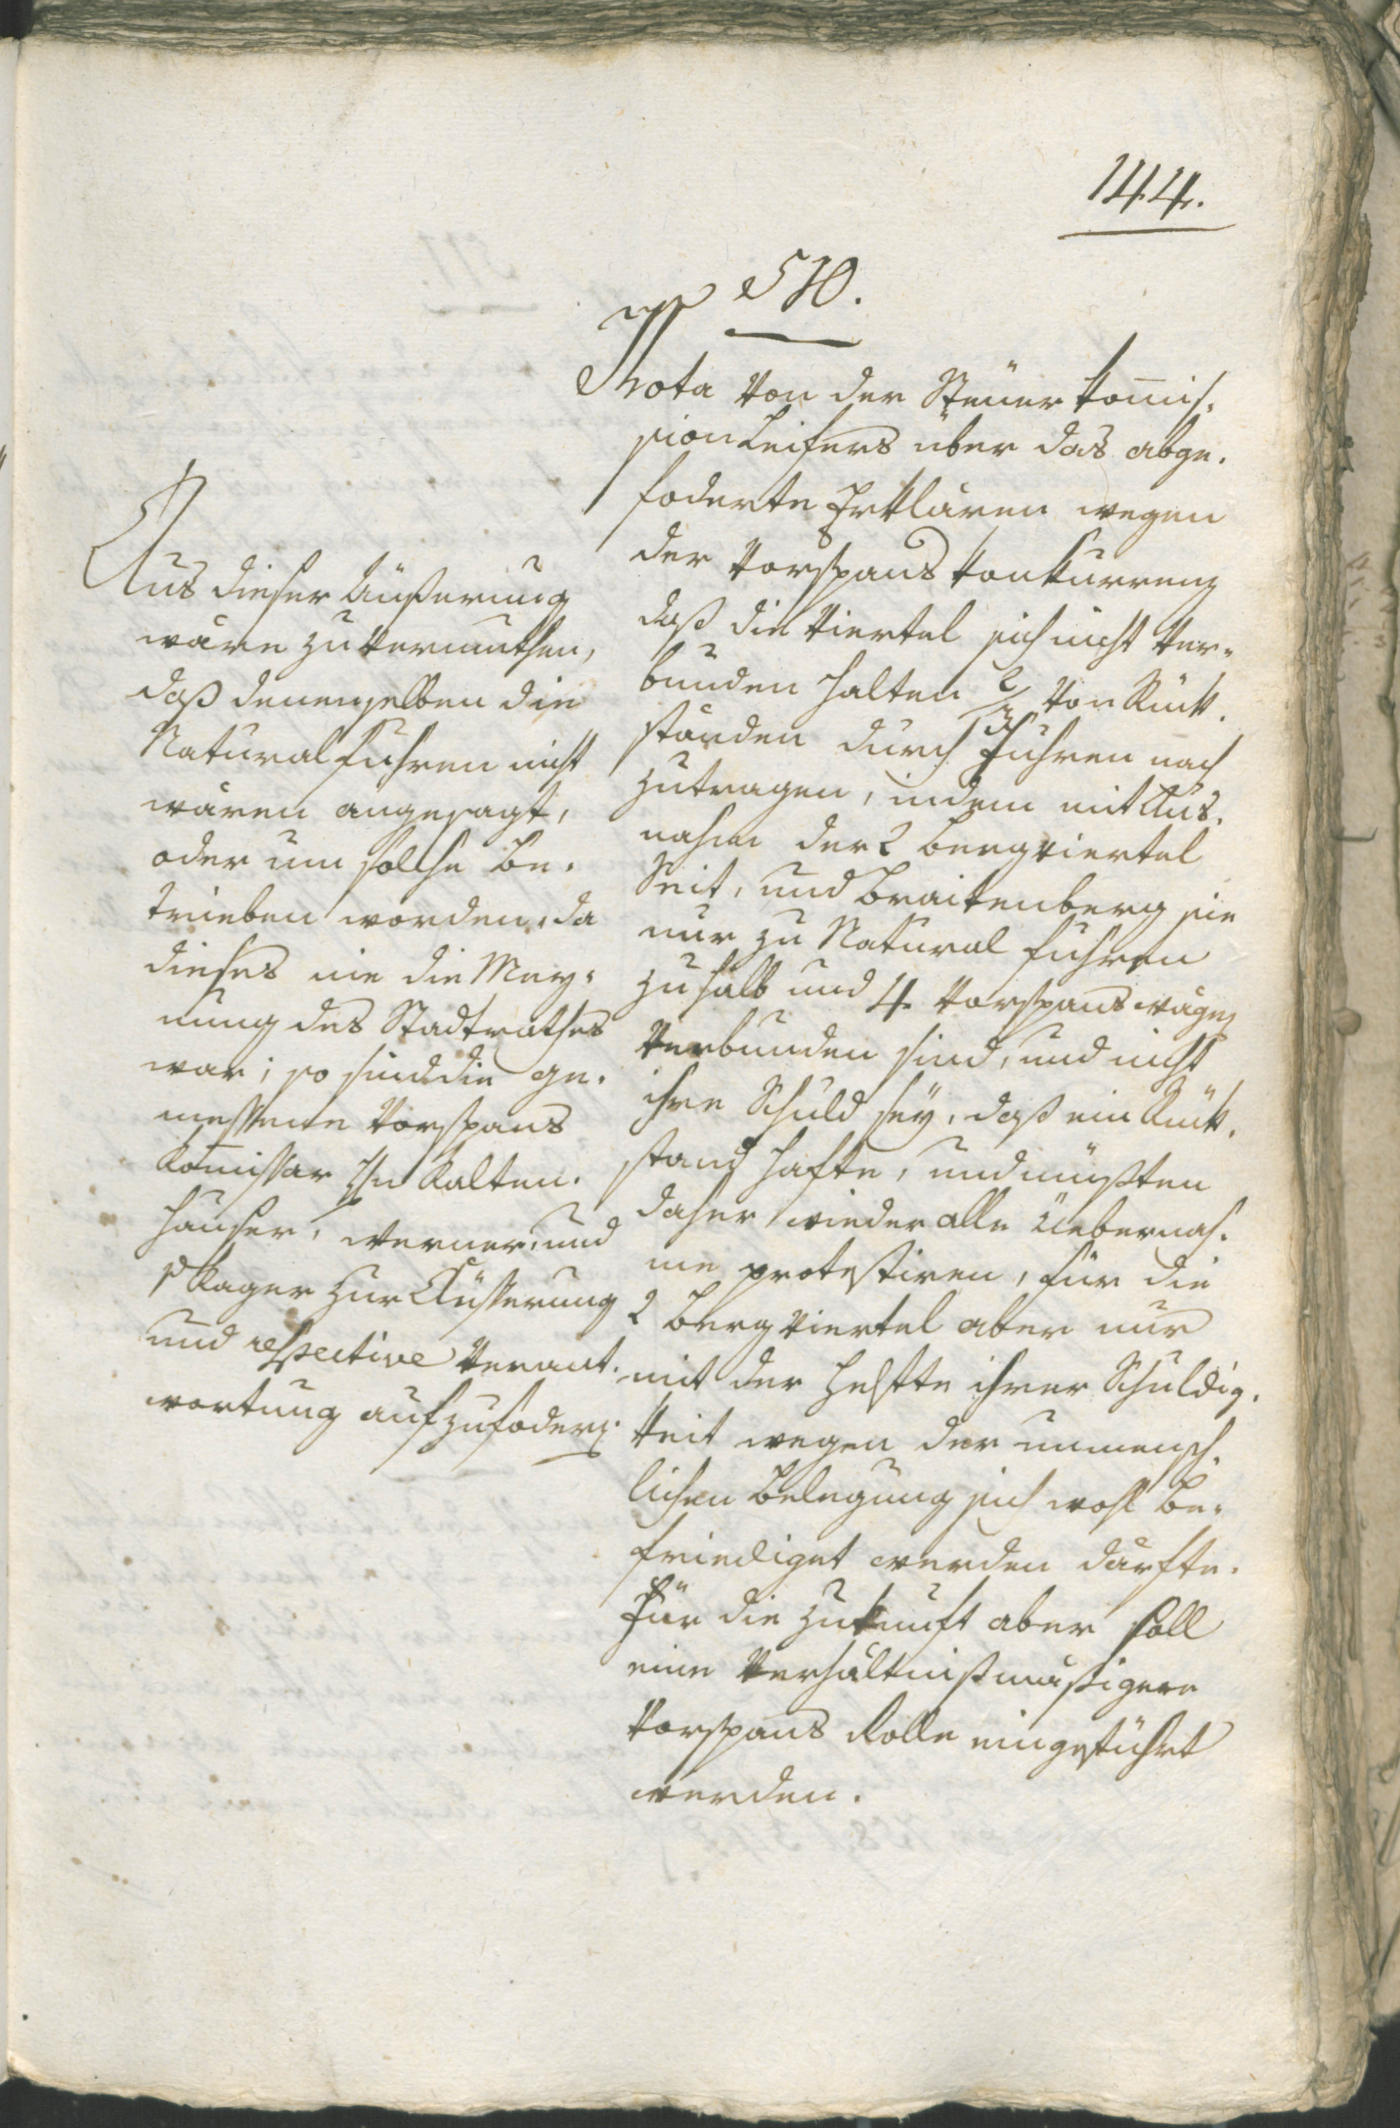 144.
510.
Nota von der Steuer Kom̅is-
sion Leifers über das abge-
foderte Erklären wegen
der Vorspans Konkurrenz
daß die Viertel sich nicht ver-
bunden halten 2/3 von Rük-
stånden durch Fuhren nach
zutragen, indem mit Aus-
nahm der 2 Bergviertel
Seit, und Breitenberg sie
nur zu Natural fuhren
zu halb und 4 Vorspanswågen
verbunden sind, und nicht
ihre Schuld seÿ, daß ein Rük-
stand hafte, und müßten
daher wieder alle Uebernah-
me protestiren, für die
2 Bergviertel aber nur
mit der Helfte ihrer Schuldig-
keit wegen der unmensch-
lichen Belegung sich wohl be-
friediget werden dürfte.
Für die Zukunft aber soll
eine verhältnißmäßigere
Vorspans Rolle eingeführt
werden.
Aus dieser Äußerung
wåre zu vermuthen,
daß denenselben die
Naturalfuhren nicht
wåren angesagt,
oder um solche be-
trieben worden, da
dieses nie die Mey-
nung des Stadtrathes
war; so sind die ge-
messene Vorspans
Kom̅issar Hn Kalten-
hauser, Werner, und
Kager zur Äusserung
und respective Verant-
wortung aufzufodern.